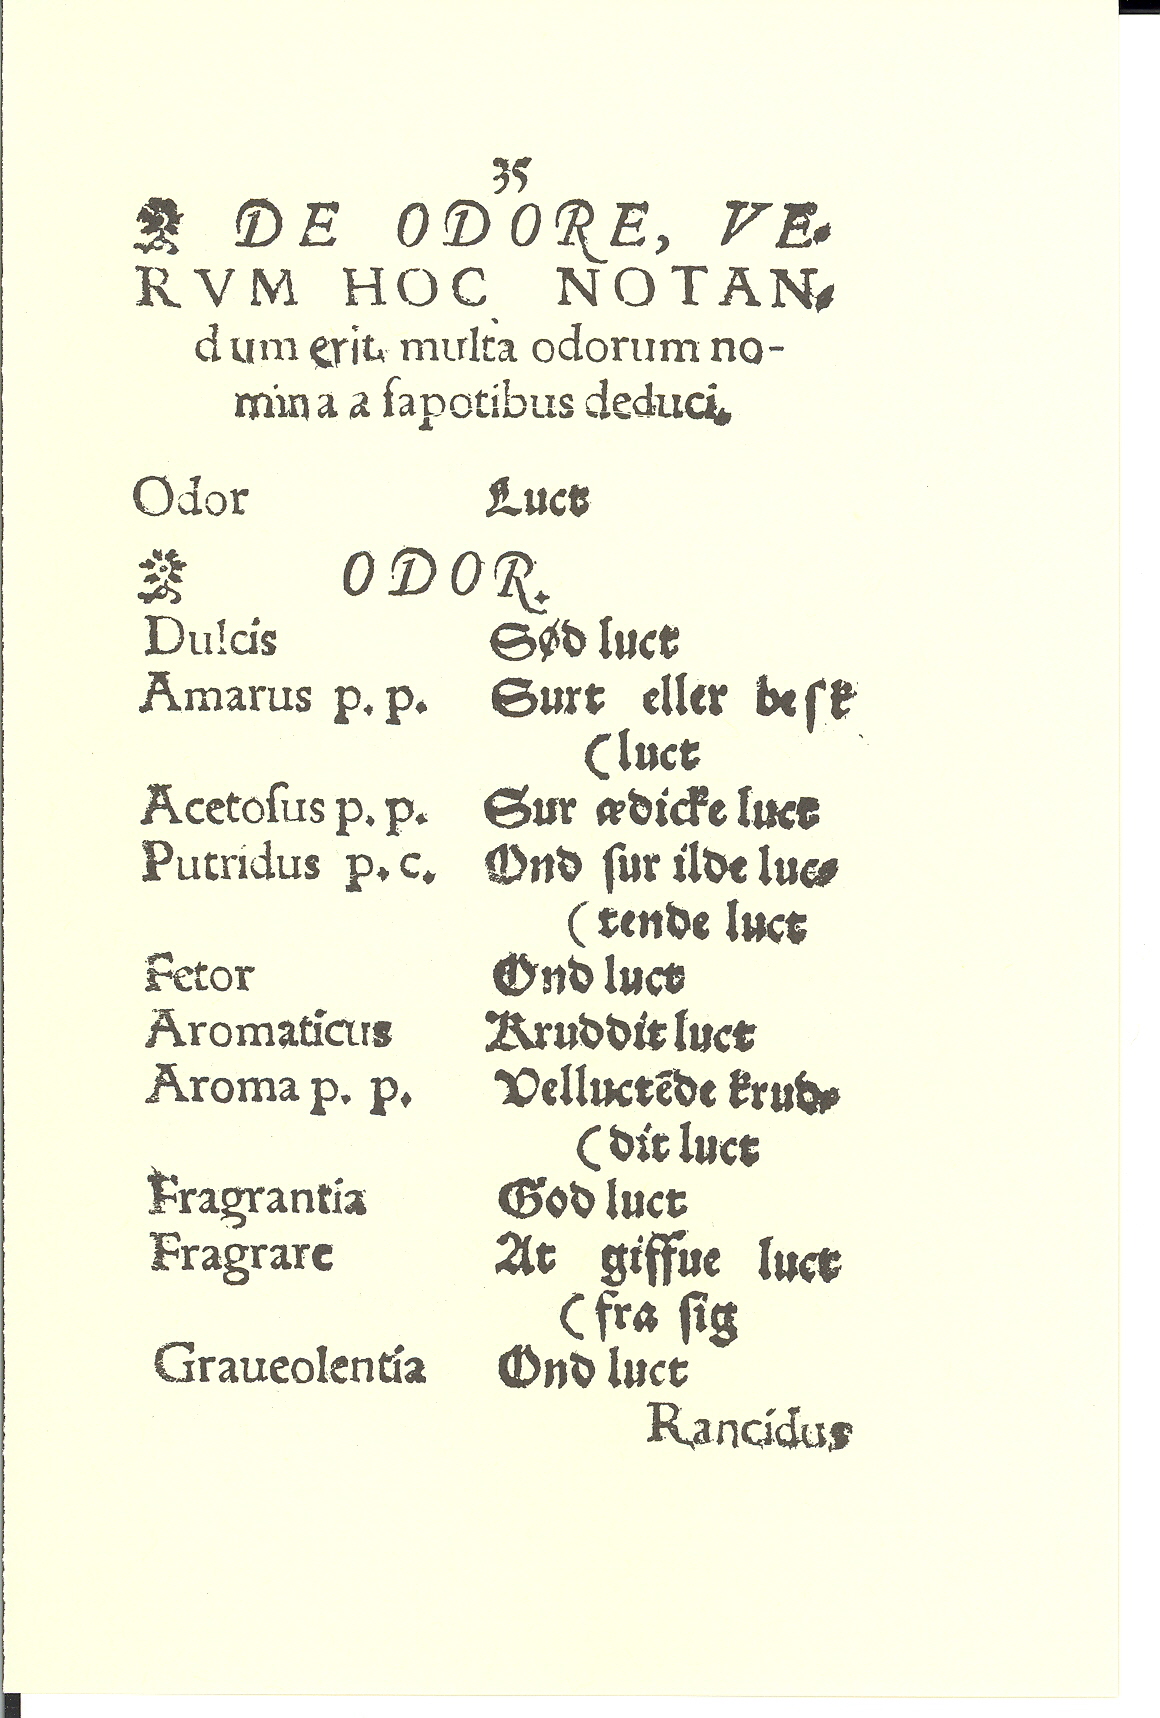 35
DE ODORE, VE-
RVM HOC NOTAN-
dum erit, multa odorum no-
mina a ſapotibus deduci.
Odor Luct
ODOR.
Dulcis Sød luct
Amarus p. p. Surt eller beſk
(luct
Acetoſus p. p. Sur ædicke luct
Putridus p. c. Ond ſur ilde luc-
(tende luct
Fetor Ond luct
Aromaticus Kruddit luct
Aroma p. p. Velluctēde krud-
(dit luct
Fragrantia God luct
Fragrare At giffue luct
(fra ſig
Graueolentia Ond luct
Rancidus